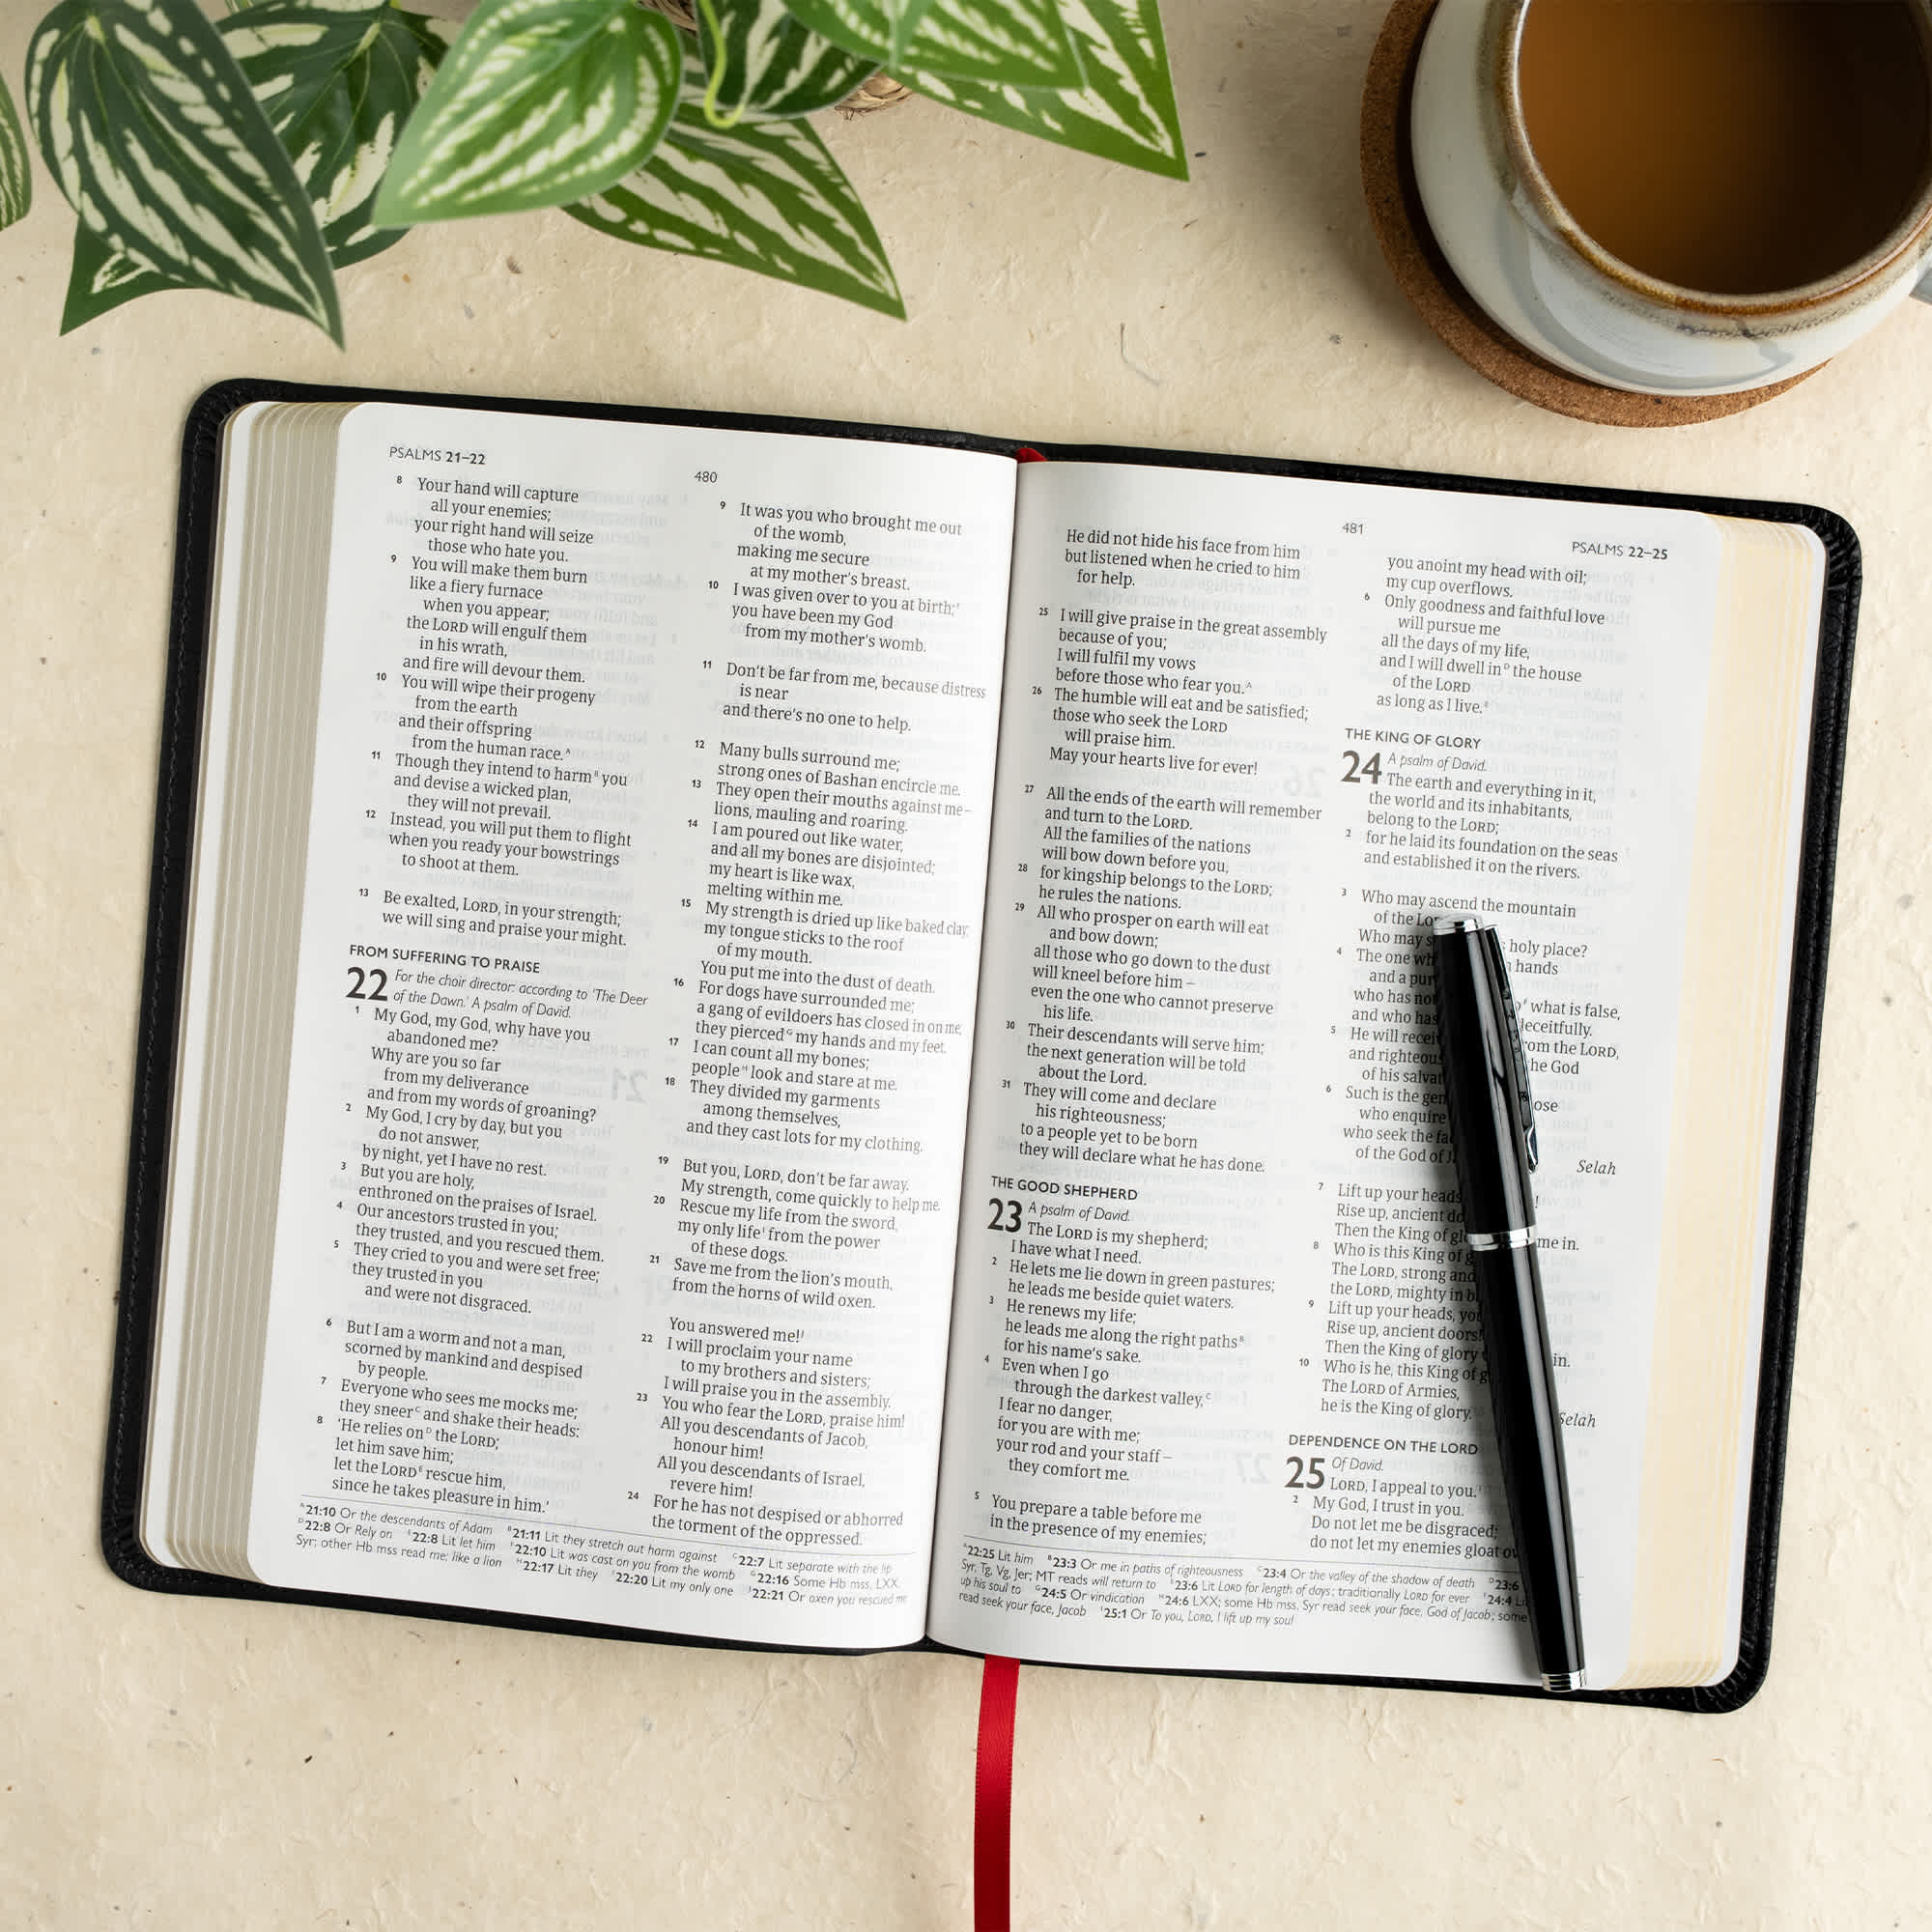 PSALMS 21–22
480
8 Your hand will capture
all your enemies;
your right hand will seize
those who hate you.
9 You will make them burn
like a fiery furnace
when you appear;
the LORD will engulf them
in his wrath,
and fire will devour them.
10 You will wipe their progeny
from the earth
and their offspring
from the human race.ᴬ
11 Though they intend to harmᴮ you
and devise a wicked plan,
they will not prevail.
12 Instead, you will put them to flight
when you ready your bowstrings
to shoot at them.
13 Be exalted, LORD, in your strength;
we will sing and praise your might.
FROM SUFFERING TO PRAISE
22 For the choir director: according to 'The Deer
of the Dawn.' A psalm of David.
1 My God, my God, why have you
abandoned me?
Why are you so far
from my deliverance
and from my words of groaning?
2 My God, I cry by day, but you
do not answer,
by night, yet I have no rest.
3 But you are holy,
enthroned on the praises of Israel.
4 Our ancestors trusted in you;
they trusted, and you rescued them.
5 They cried to you and were set free;
they trusted in you
and were not disgraced.
6 But I am a worm and not a man,
scorned by mankind and despised
by people.
7 Everyone who sees me mocks me;
they sneerᶜ and shake their heads:
8 'He relies onᴰ the LORD;
let him save him;
let the LORDᴱ rescue him,
since he takes pleasure in him.'
9 It was you who brought me out
of the womb,
making me secure
at my mother's breast.
10 I was given over to you at birth;ᶠ
you have been my God
from my mother's womb.
11 Don't be far from me, because distress
is near
and there's no one to help.
12 Many bulls surround me;
strong ones of Bashan encircle me.
13 They open their mouths against me –
lions, mauling and roaring.
14 I am poured out like water,
and all my bones are disjointed;
my heart is like wax,
melting within me.
15 My strength is dried up like baked clay;
my tongue sticks to the roof
of my mouth.
You put me into the dust of death.
16 For dogs have surrounded me;
a gang of evildoers has closed in on me;
they piercedᴳ my hands and my feet.
17 I can count all my bones;
peopleᴴ look and stare at me.
18 They divided my garments
among themselves,
and they cast lots for my clothing.
19 But you, LORD, don't be far away.
My strength, come quickly to help me.
20 Rescue my life from the sword,
my only lifeᴵ from the power
of these dogs.
21 Save me from the lion's mouth,
from the horns of wild oxen.
You answered me!ᴶ
22 I will proclaim your name
to my brothers and sisters;
I will praise you in the assembly.
23 You who fear the LORD, praise him!
All you descendants of Jacob,
honour him!
All you descendants of Israel,
revere him!
24 For he has not despised or abhorred
the torment of the oppressed.
ᴬ21:10 Or the descendants of Adam ᴮ21:11 Lit they stretch out harm against ᶜ22:7 Lit separate with the lip
ᴰ22:8 Or Rely on ᴱ22:8 Lit let him ᶠ22:10 Lit was cast on you from the womb ᴳ22:16 Some Hb mss, LXX,
Syr; other Hb mss read me; like a lion ᴴ22:17 Lit they ᴵ22:20 Lit my only one ᴶ22:21 Or oxen you rescued me
481
PSALMS 22–25
He did not hide his face from him
but listened when he cried to him
for help.
25 I will give praise in the great assembly
because of you;
I will fulfil my vows
before those who fear you.ᴬ
26 The humble will eat and be satisfied;
those who seek the LORD
will praise him.
May your hearts live for ever!
27 All the ends of the earth will remember
and turn to the LORD.
All the families of the nations
will bow down before you,
28 for kingship belongs to the LORD;
he rules the nations.
29 All who prosper on earth will eat
and bow down;
all those who go down to the dust
will kneel before him –
even the one who cannot preserve
his life.
30 Their descendants will serve him;
the next generation will be told
about the Lord.
31 They will come and declare
his righteousness;
to a people yet to be born
they will declare what he has done.
THE GOOD SHEPHERD
23 A psalm of David.
The LORD is my shepherd;
I have what I need.
2 He lets me lie down in green pastures;
he leads me beside quiet waters.
3 He renews my life;
he leads me along the right pathsᴮ
for his name's sake.
4 Even when I go
through the darkest valley,ᶜ
I fear no danger,
for you are with me;
your rod and your staff –
they comfort me.
5 You prepare a table before me
in the presence of my enemies;
you anoint my head with oil;
my cup overflows.
6 Only goodness and faithful love
will pursue me
all the days of my life,
and I will dwell inᴰ the house
of the LORD
as long as I live.ᴱ
THE KING OF GLORY
24 A psalm of David.
The earth and everything in it,
the world and its inhabitants,
belong to the LORD;
2 for he laid its foundation on the seas
and established it on the rivers.
3 Who may ascend the mountain
of the
Who may holy place?
4 The one hands
and a
who has what is false,
and who has
5 He will the LORD,
and the God
of his
6 Such is the
who enquire
who seek the
of the God of
Selah
7 Lift up your heads
Rise up, ancient
Then the King of in.
8 Who is this King of
The LORD, strong and
the LORD, mighty in
9 Lift up your heads,
Rise up, ancient doors!
Then the King of glory in.
10 Who is he, this King of
The LORD of Armies,
he is the King of glory.
Selah
DEPENDENCE ON THE LORD
25 Of David.
LORD, I appeal to you.ᴵ
2 My God, I trust in you.
Do not let me be disgraced;
do not let my enemies gloat
ᴬ22:25 Lit him ᴮ23:3 Or me in paths of righteousness ᶜ23:4 Or the valley of the shadow of death ᴰ23:6
Syr, Tg, Vg, Jer; MT reads will return to ᴱ23:6 Lit LORD for length of days; traditionally LORD for ever ᶠ24:4
up his soul to ᴳ24:5 Or vindication ᴴ24:6 LXX; some Hb mss, Syr read seek your face, God of Jacob; some
read seek your face, Jacob ᴵ25:1 Or To you, LORD, I lift up my soul